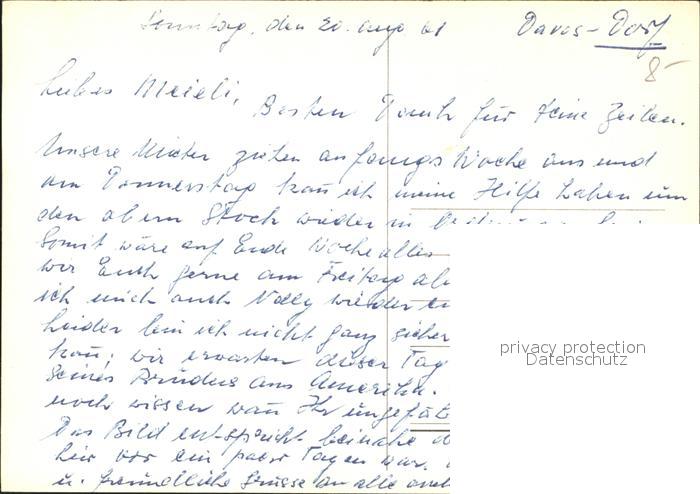 Sonntag, den 20. Aug 61 Davos-Dorf
8-
Liebes Meieli,
Besten Dank für Deine Zeilen.
Unsere Mieter ziehen anfangs Woche aus und
am Donnerstag kañ ich meine Hilfe haben um
den obern Stock wieder in
Somit wäre auf Ende Woche alles
wir Euch gerne am Freitag
ich mich auch Nelly wieder
Leider bin ich nicht ganz sicher
kañ; wir erwarten dieser Tag
seines Bruders aus Amerika.
noch wissen wañ Ihr ungefähr
Das Bild entspricht beinahe
hier vor ein paar Tagen war.
u. freundliche Grüsse an alle auch
privacy protection
Datenschutz